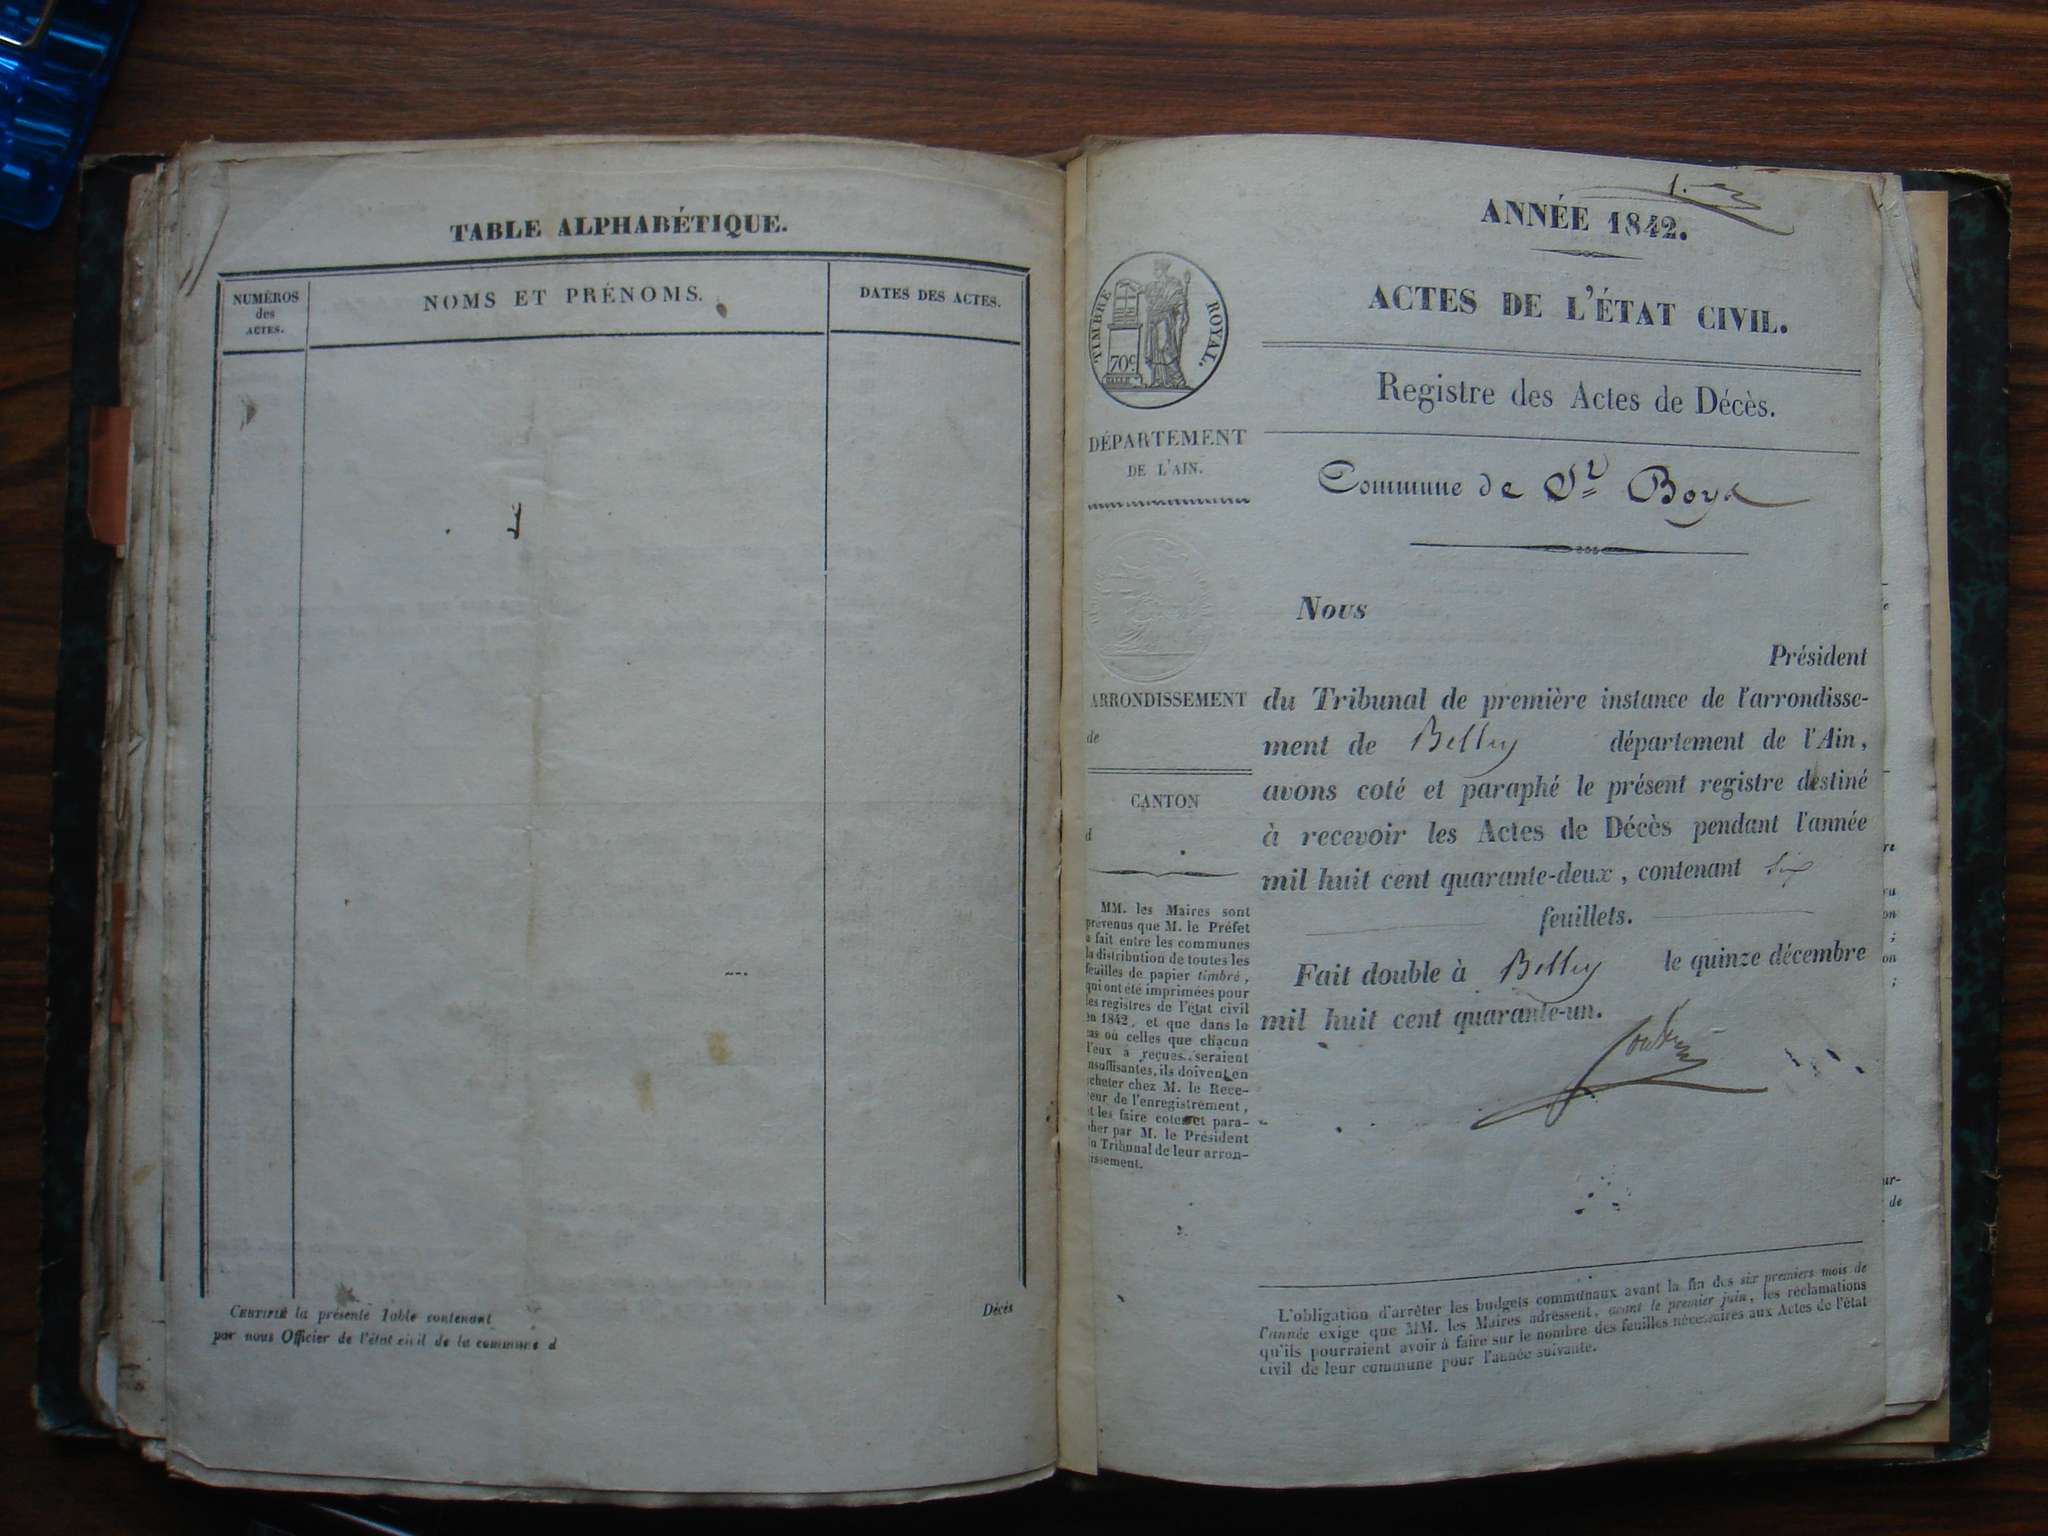 TABLE ALPHABÉTIQUE.
NUMÉROS
des
ACTES.
NOMS ET PRÉNOMS.
DATES DES ACTES.
CERTIFIÉ la présente Table contenant
Décès
par nous Officier de l'état civil de la commune d
1.
ANNÉE 1842.
ACTES DE L'ÉTAT CIVIL.
Registre des Actes de Décès.
Commune de St Boys
TIMBRE ROYAL.
70c
DÉPARTEMENT
DE L'AIN.
ARRONDISSEMENT
de
CANTON
d
MM. les Maires sont
prévenus que M. le Préfet
a fait entre les communes
la distribution de toutes les
feuilles de papier timbré,
qui ont été imprimées pour
les registres de l'état civil
en 1842, et que dans le
cas où celles que chacun
d'eux a reçues, seraient
insuffisantes, ils doivent en
acheter chez M. le Rece-
veur de l'enregistrement,
et les faire coter et para-
pher par M. le Président
du Tribunal de leur arron-
dissement.
Nous
Président
du Tribunal de première instance de l'arrondisse-
ment de Belley département de l'Ain,
avons coté et paraphé le présent registre destiné
à recevoir les Actes de Décès pendant l'année
mil huit cent quarante-deux, contenant six
feuillets.
Fait double à Belley le quinze décembre
mil huit cent quarante-un.
L'obligation d'arrêter les budgets communaux avant la fin des six premiers mois de
l'année exige que MM. les Maires adressent, avant le premier juin, les réclamations
qu'ils pourraient avoir à faire sur le nombre des feuilles nécessaires aux Actes de l'état
civil de leur commune pour l'année suivante.